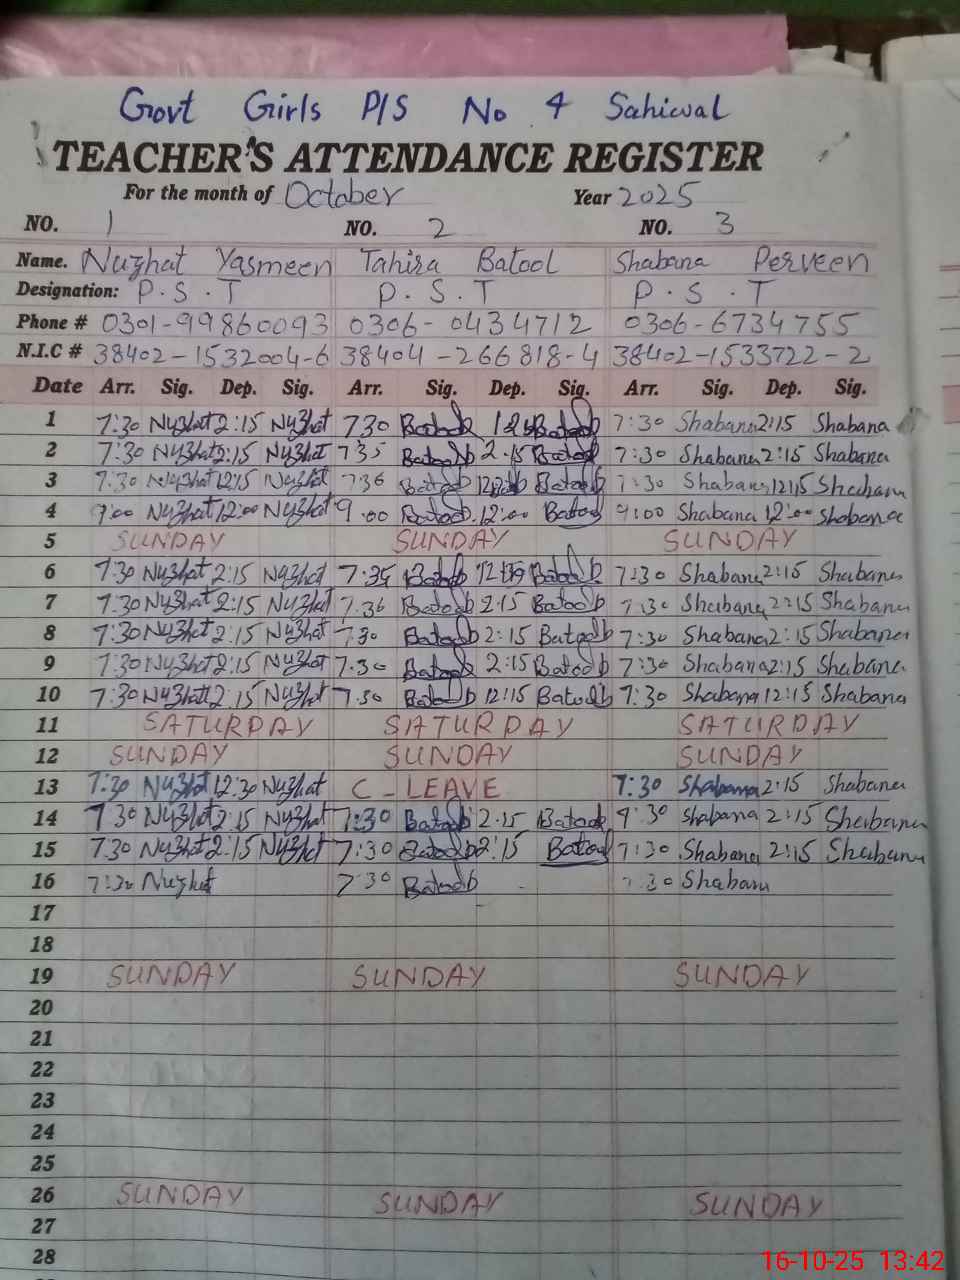 Govt Girls P/S No 4 Sahiwal
TEACHER'S ATTENDANCE REGISTER
For the month of October Year 2025
NO. 1 NO. 2 NO. 3
Name. Nuzhat Yasmeen Tahira Batool Shabana Perveen
Designation: P.S.T P.S.T P.S.T
Phone # 0301-99860093 0306-0434712 0306-6734755
N.I.C # 38402-1532004-6 38404-266818-4 38402-1533722-2
Date Arr. Sig. Dep. Sig. Arr. Sig. Dep. Sig. Arr. Sig. Dep. Sig.
1 7:30 Nuzhat 2:15 Nuzhat 7 30 Batool Batool 7:30 Shabana 2:15 Shabana
2 7:30 Nuzhat 2:15 Nuzhat 7 35 Batool 2.15 Batool 7:30 Shabana 2:15 Shabana
3 7:30 Nuzhat 12:15 Nuzhat 7 30 Batool Batool 7:30 Shabana 12:15 Shabana
4 9:00 Nuzhat 12:00 Nuzhat 9.00 Batool 12:00 Batool 9:00 Shabana 12:00 Shabana
5 SUNDAY SUNDAY SUNDAY
6 7:30 Nuzhat 2:15 Nuzhat 7:35 Batool Batool 7:30 Shabana 2:15 Shabana
7 7:30 Nuzhat 2:15 Nuzhat 7.30 Batool 2.15 Batool 7:30 Shabana 2:15 Shabana
8 7:30 Nuzhat 2:15 Nuzhat 7:30 Batool 2:15 Batool 7:30 Shabana 2:15 Shabana
9 7:30 Nuzhat 2:15 Nuzhat 7.30 Batool 2:15 Batool 7:30 Shabana 2:15 Shabana
10 7:30 Nuzhat 12:15 Nuzhat 7.30 Batool 12:15 Batool 7:30 Shabana 12:15 Shabana
11 SATURDAY SATURDAY SATURDAY
12 SUNDAY SUNDAY SUNDAY
13 7:30 Nuzhat 12:30 Nuzhat C - LEAVE 7:30 Shabana 2:15 Shabana
14 7 30 Nuzhat 2:15 Nuzhat 7:30 Batool 2.15 Batool 7:30 Shabana 2:15 Shabana
15 7:30 Nuzhat 2:15 Nuzhat 7:30 Batool 2:15 Batool 7:30 Shabana 2:15 Shabana
16 7:30 Nuzhat 7:30 Batool 7:30 Shabana
17
18
19 SUNDAY SUNDAY SUNDAY
20
21
22
23
24
25
26 SUNDAY SUNDAY SUNDAY
27
28
16-10-25 13:42